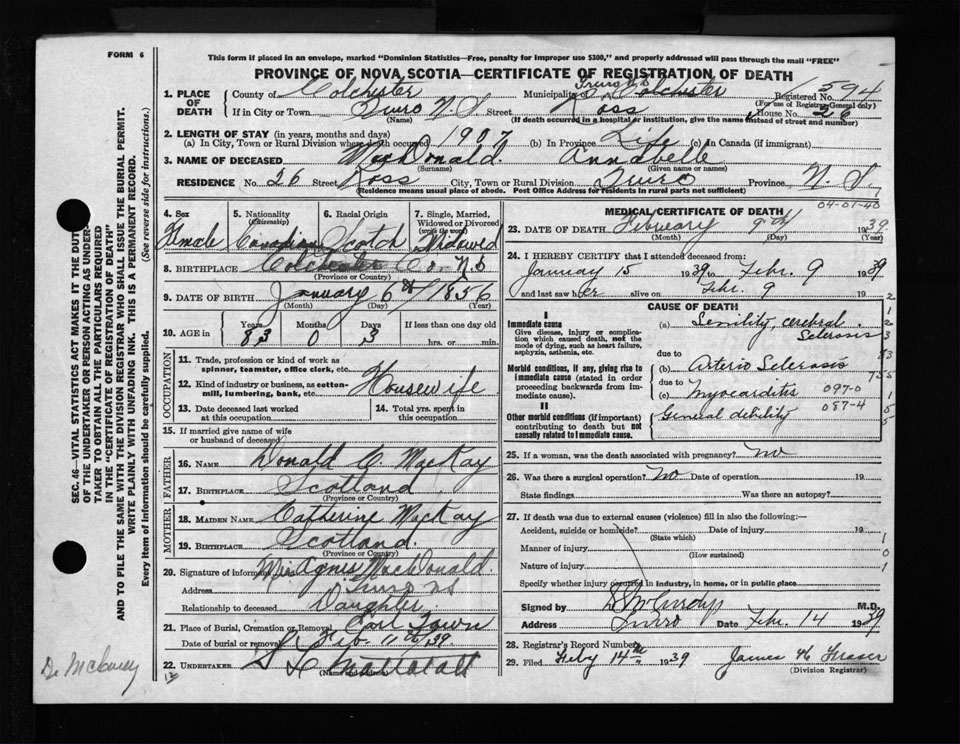 FORM 6
This form if placed in an envelope, marked "Dominion Statistics—Free, penalty for improper use $300," and properly addressed will pass through the mail "FREE"
PROVINCE OF NOVA SCOTIA—CERTIFICATE OF REGISTRATION OF DEATH
1. PLACE OF DEATH
County of Colchester Municipality Colchester Registered No. 594
(For use of Registrar General only)
If in City or Town Truro N.S. Street Ross House No. 26
(Name) (If death occurred in a hospital or institution, give the name instead of street and number)
2. LENGTH OF STAY (in years, months and days)
(a) In City, Town or Rural Division where death occurred 1907 (b) In Province Life (c) In Canada (if immigrant)
3. NAME OF DECEASED MacDonald. Annabelle
(Surname) (Given name or names)
RESIDENCE No 26 Street Ross City, Town or Rural Division Truro Province N.S.
(Residence means usual place of abode. Post Office Address for residents in rural parts not sufficient)
4. Sex Female
5. Nationality (Citizenship) Canadian
6. Racial Origin Scotch
7. Single, Married, Widowed or Divorced (write the word) Widowed
8. BIRTHPLACE Colchester Co. N.S
(Province or Country)
9. DATE OF BIRTH January 6th 1856
(Month) (Day) (Year)
10. AGE in Years 83 Months 0 Days 3 If less than one day old hrs. or min.
OCCUPATION
11. Trade, profession or kind of work as spinner, teamster, office clerk, etc.
Housewife
12. Kind of industry or business, as cotton-mill, lumbering, bank, etc.
13. Date deceased last worked at this occupation
14. Total yrs. spent in this occupation
15. If married give name of wife or husband of deceased
FATHER
16. NAME Donald C. MacKay
17. BIRTHPLACE Scotland
(Province or Country)
MOTHER
18. MAIDEN NAME Catherine MacKay
19. BIRTHPLACE Scotland.
(Province or Country)
20. Signature of informant Mrs Agnes MacDonald.
Address Truro NS
Relationship to deceased Daughter.
21. Place of Burial, Cremation or Removal Earl Town
Date of burial or removal Feb. 11th/39.
22. UNDERTAKER Mattatall
(Name and address)
04-01-40
MEDICAL CERTIFICATE OF DEATH
23. DATE OF DEATH February 9th 1939
(Month) (Day) (Year)
24. I HEREBY CERTIFY that I attended deceased from:
January 15 1939 to Febr. 9 1939
and last saw her alive on Febr. 9 19
CAUSE OF DEATH
I
Immediate cause
Give disease, injury or complication which caused death, not the mode of dying, such as heart failure, asphyxia, asthenia, etc.
(a) Senility, cerebral Sclerosis
due to
Morbid conditions, if any, giving rise to immediate cause (stated in order proceeding backwards from immediate cause).
(b) Arterio Sclerosis
due to
(c) Myocarditis 097-0
II
Other morbid conditions (if important) contributing to death but not causally related to immediate cause.
General debility 087-4
25. If a woman, was the death associated with pregnancy? no
26. Was there a surgical operation? no Date of operation 19
State findings Was there an autopsy?
27. If death was due to external causes (violence) fill in also the following:
Accident, suicide or homicide? Date of injury 19
(State which)
Manner of injury
(How sustained)
Nature of injury
Specify whether injury occurred in industry, in home, or in public place
Signed by McCurdy M.D.
Address Truro Date Febr. 14 1939
28. Registrar's Record Number
29. Filed Feby 14th 1939 James H Fraser
(Division Registrar)
SEC. 46—VITAL STATISTICS ACT MAKES IT THE DUTY OF THE UNDERTAKER OR PERSON ACTING AS UNDERTAKER TO OBTAIN ALL THE PARTICULARS REQUIRED IN THE "CERTIFICATE OF REGISTRATION OF DEATH" AND TO PILE THE SAME WITH THE DIVISION REGISTRAR WHO SHALL ISSUE THE BURIAL PERMIT.
WRITE PLAINLY WITH UNFADING INK. THIS IS A PERMANENT RECORD.
Every item of information should be carefully supplied. (See reverse side for instructions.)